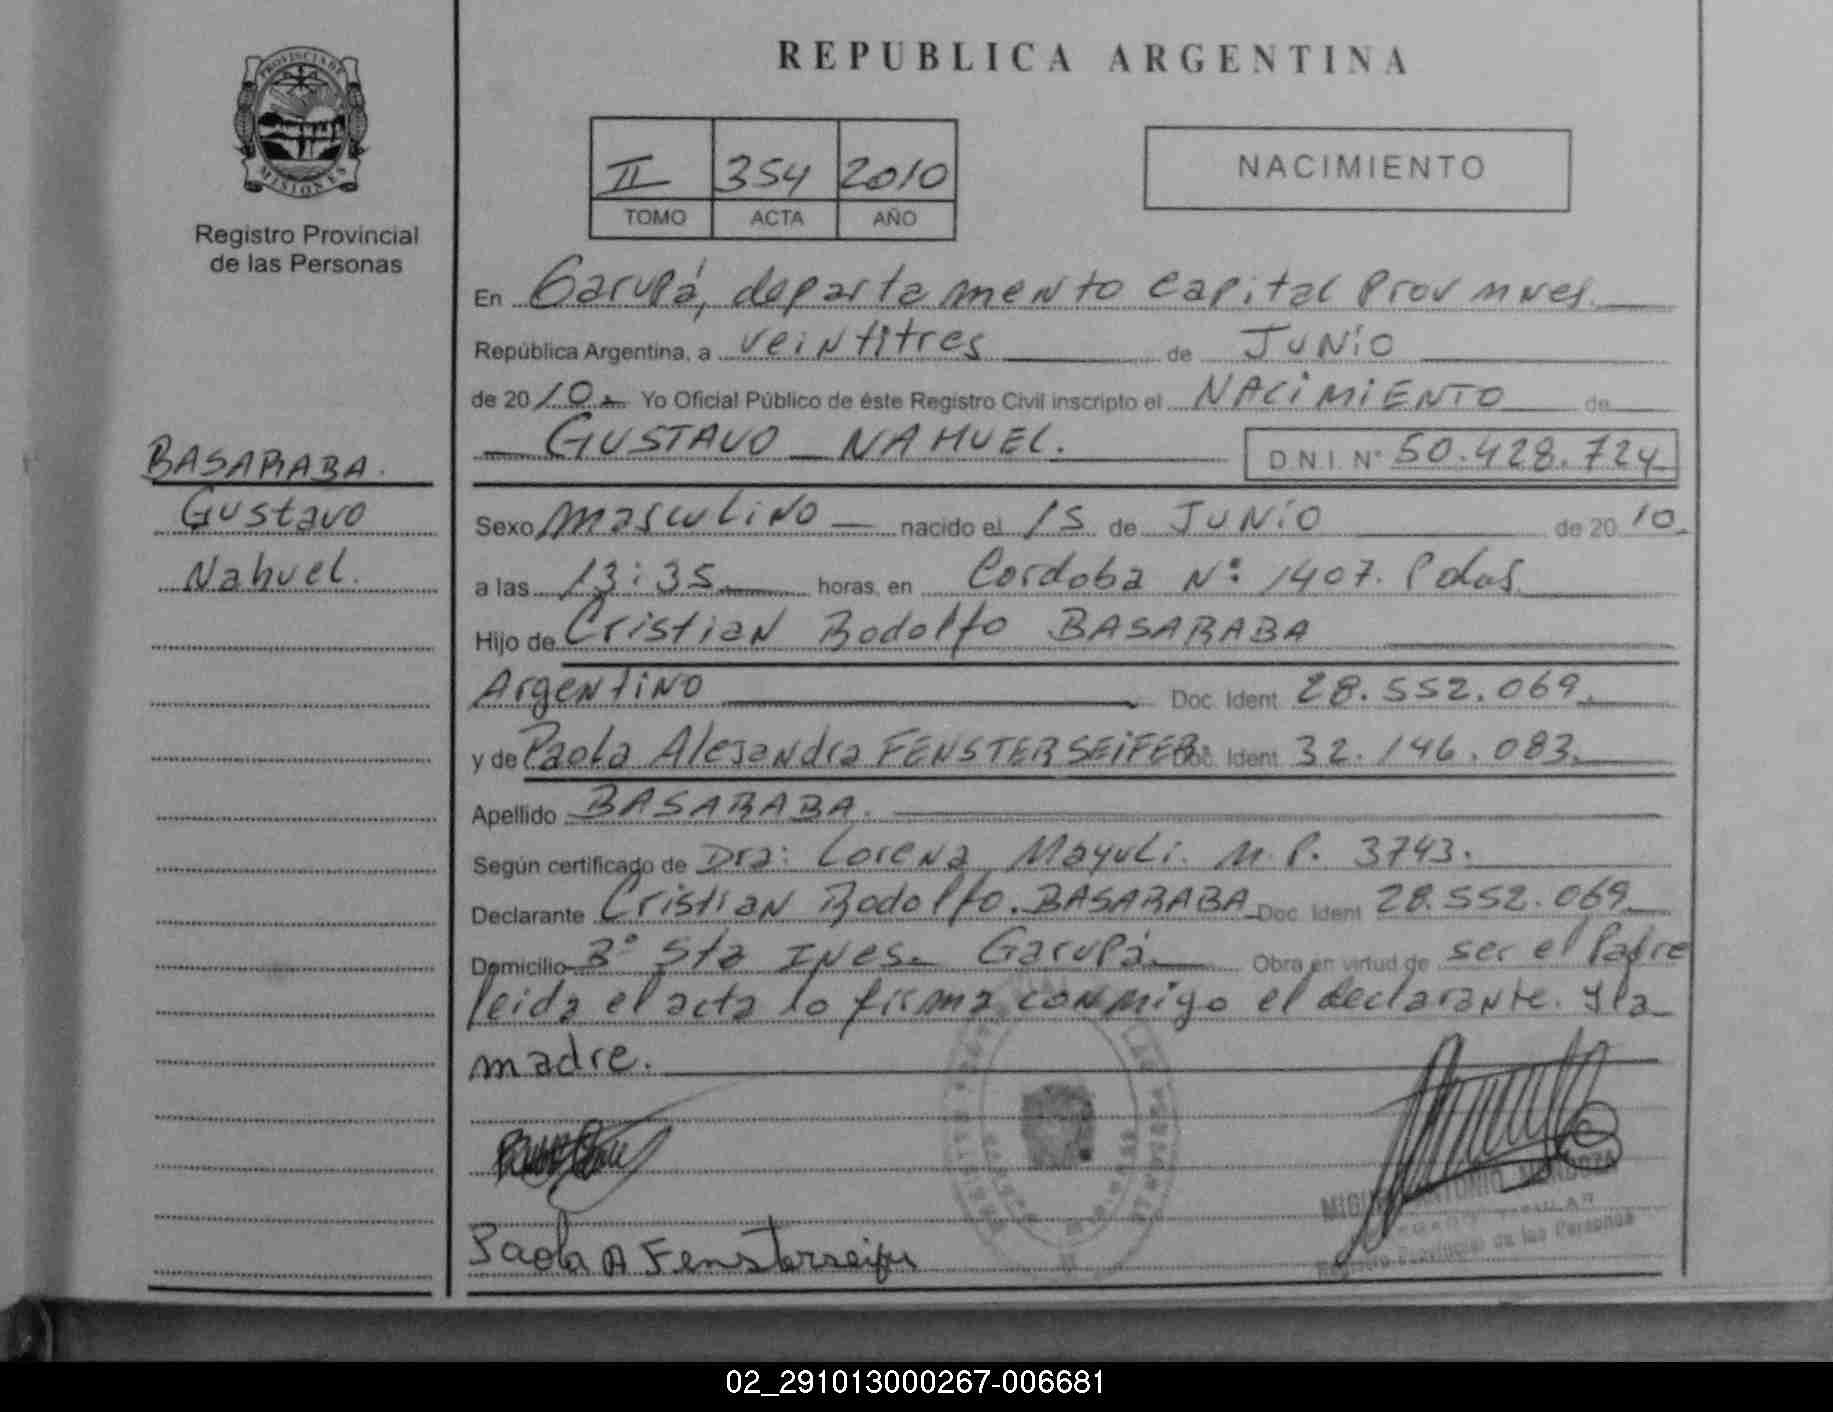 REPUBLICA ARGENTINA
PROVINCIA DE
MISIONES
Registro Provincial
de las Personas
II 354 2010
TOMO ACTA AÑO
NACIMIENTO
En Garupá, departamento Capital Prov Mnes.
República Argentina, a veintitres de JUNIO
de 2010 Yo Oficial Público de éste Registro Civil inscripto el NACIMIENTO de
GUSTAVO NAHUEL.
D.N.I. N° 50.428.724
BASARABA.
Gustavo
Nahuel.
Sexo masculino nacido el 15 de JUNIO de 2010.
a las 13:35 horas, en Cordoba N°: 1407. Pdas.
Hijo de Cristian Rodolfo BASARABA
Argentino Doc. Ident 28.552.069.
y de Paola Alejandra FENSTERSEIFER Doc. Ident 32.146.083.
Apellido BASARABA.
Según certificado de Dra: Lorena Mayuli. M.P. 3743.
Declarante Cristian Rodolfo. BASARABA Doc. Ident 28.552.069
Domicilio B° Sta Ines. Garupá. Obra en virtud de ser el Padre
leida el acta lo firma conmigo el declarante. y la
madre.
MIGUEL ANTONIO MENDOZA
TITULAR
Registro Provincial de las Personas
Paola A Fensterseifer
02_291013000267-006681